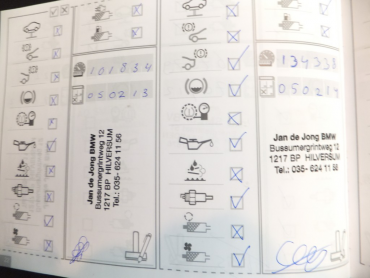 101834
050213
Jan de Jong BMW
Bussumergrintweg 12
1217 BP HILVERSUM
Tel.: 035- 624 11 56
134338
050214
Jan de Jong BMW
Bussumergrintweg 12
1217 BP HILVERSUM
Tel.: 035- 624 11 56